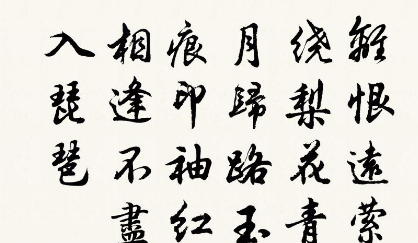 離恨遠縈
繞梨花青
月歸路玉
痕印袖紅
相逢不盡
入琵琶